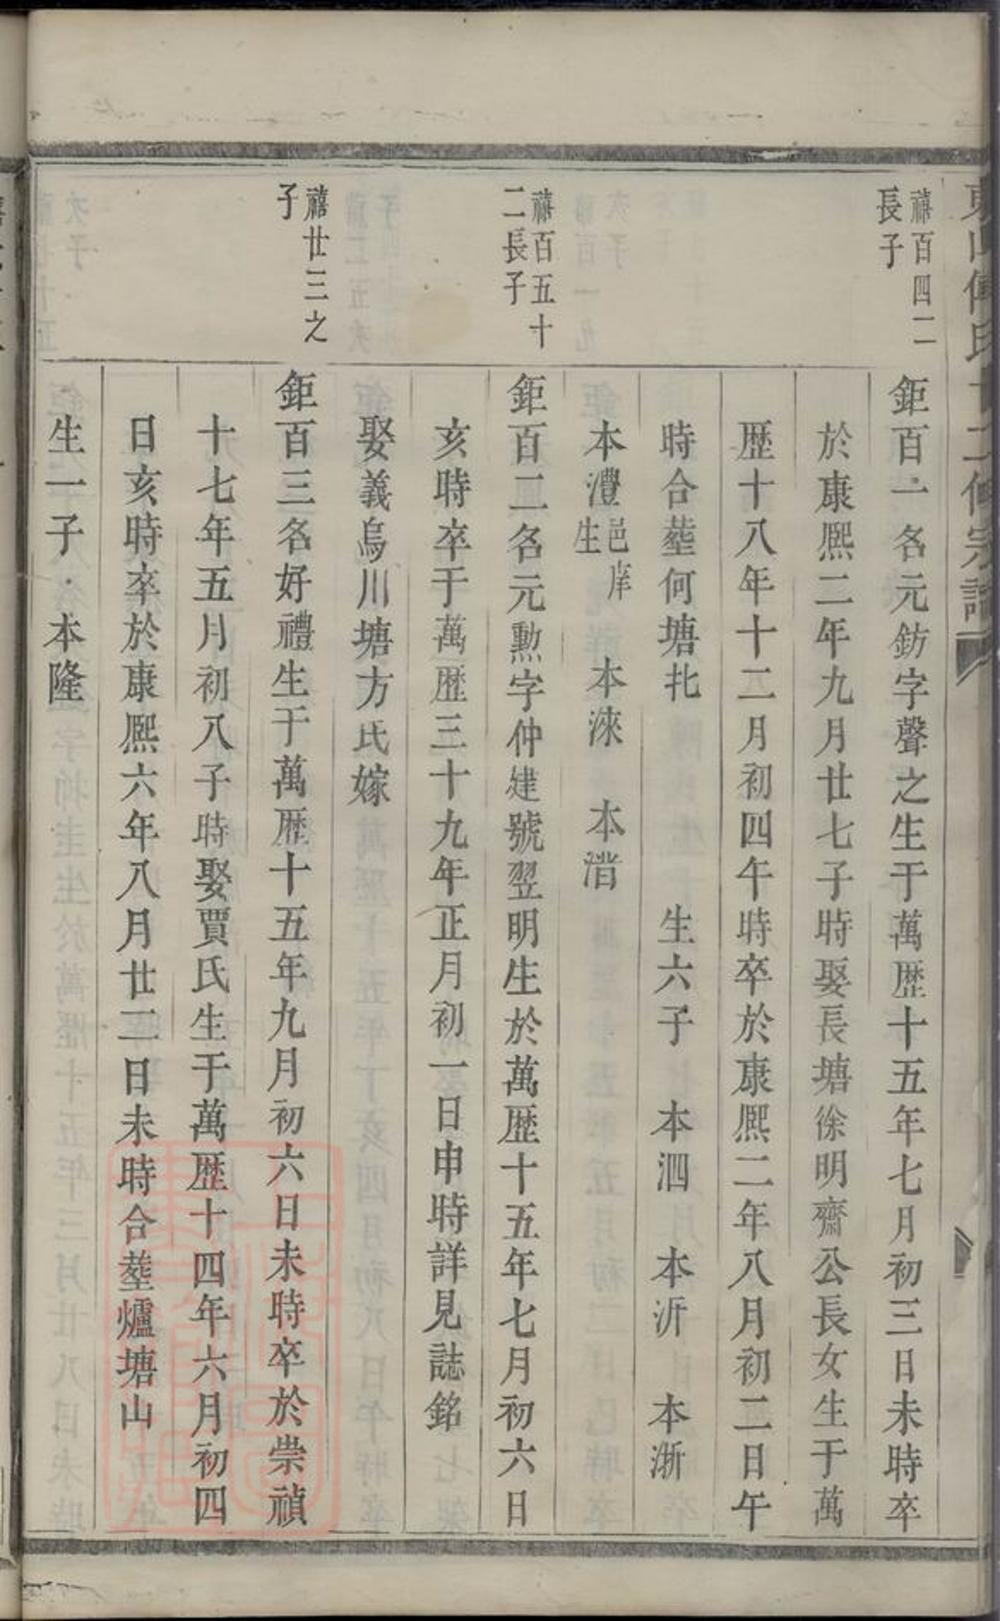 禧百四二
長子
鉅百一名元鈁字聲之生于萬歷十五年七月初三日未時卒
於康熙二年九月廿七子時娶長塘徐明齋公長女生于萬
歷十八年十二月初四午時卒於康熙二年八月初二日午
時合塟何塘圠 生六子 本泗 本沂 本浙
本灃邑庠生 本淶 本湝
禧百五十
二長子
鉅百二名元勲字仲建號翌明生於萬歷十五年七月初六日
亥時卒于萬歷三十九年正月初一日申時詳見誌銘
娶義烏川塘方氏嫁
禧廿三之
子
鉅百三名好禮生于萬歷十五年九月初六日未時卒於崇禎
十七年五月初八子時娶賈氏生于萬歷十四年六月初四
日亥時卒於康熙六年八月廿二日未時合塟爐塘山
生一子 本隆